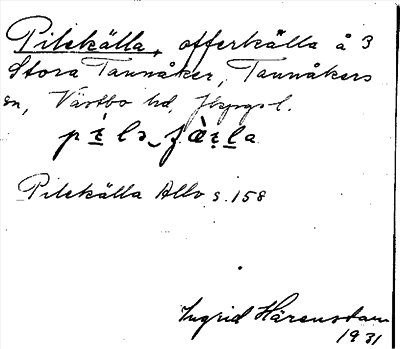 Pilekälla, offerkälla å 3
Stora Tannåker, Tannåkers
sn, Västbo hd, Jkpgs l.
Pilekälla Allvo s. 158
Ingrid Härenstam
1931